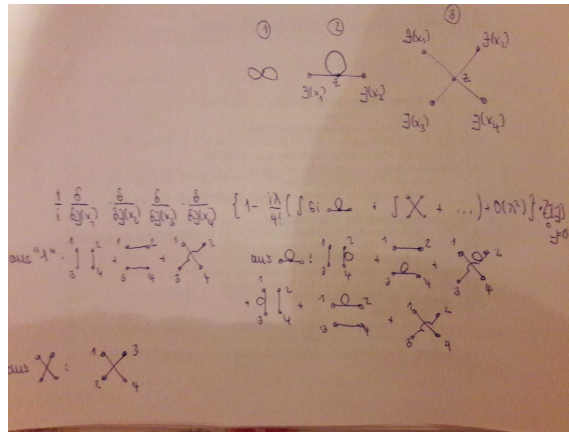 ① ② ③
J(x₁) J(x₂)
z z
J(x₁) J(x₂)
J(x₃) J(x₄)
1/i δ/δJ(x₁) · δ/δJ(x₂) · δ/δJ(x₃) · δ/δJ(x₄) { 1 - iλ/4! ( ∫ 6i + ∫ + ... ) + O(λ²) } · Z₀[J] J=0
aus "1" : 1 2 3 4 + 1 2 3 4 + 1 2 3 4 aus : 1 2 3 4 + 1 2 3 4 + 1 2 3 4
+ 1 2 3 4 + 1 2 3 4 + 1 2 3 4
aus : 1 3 2 4